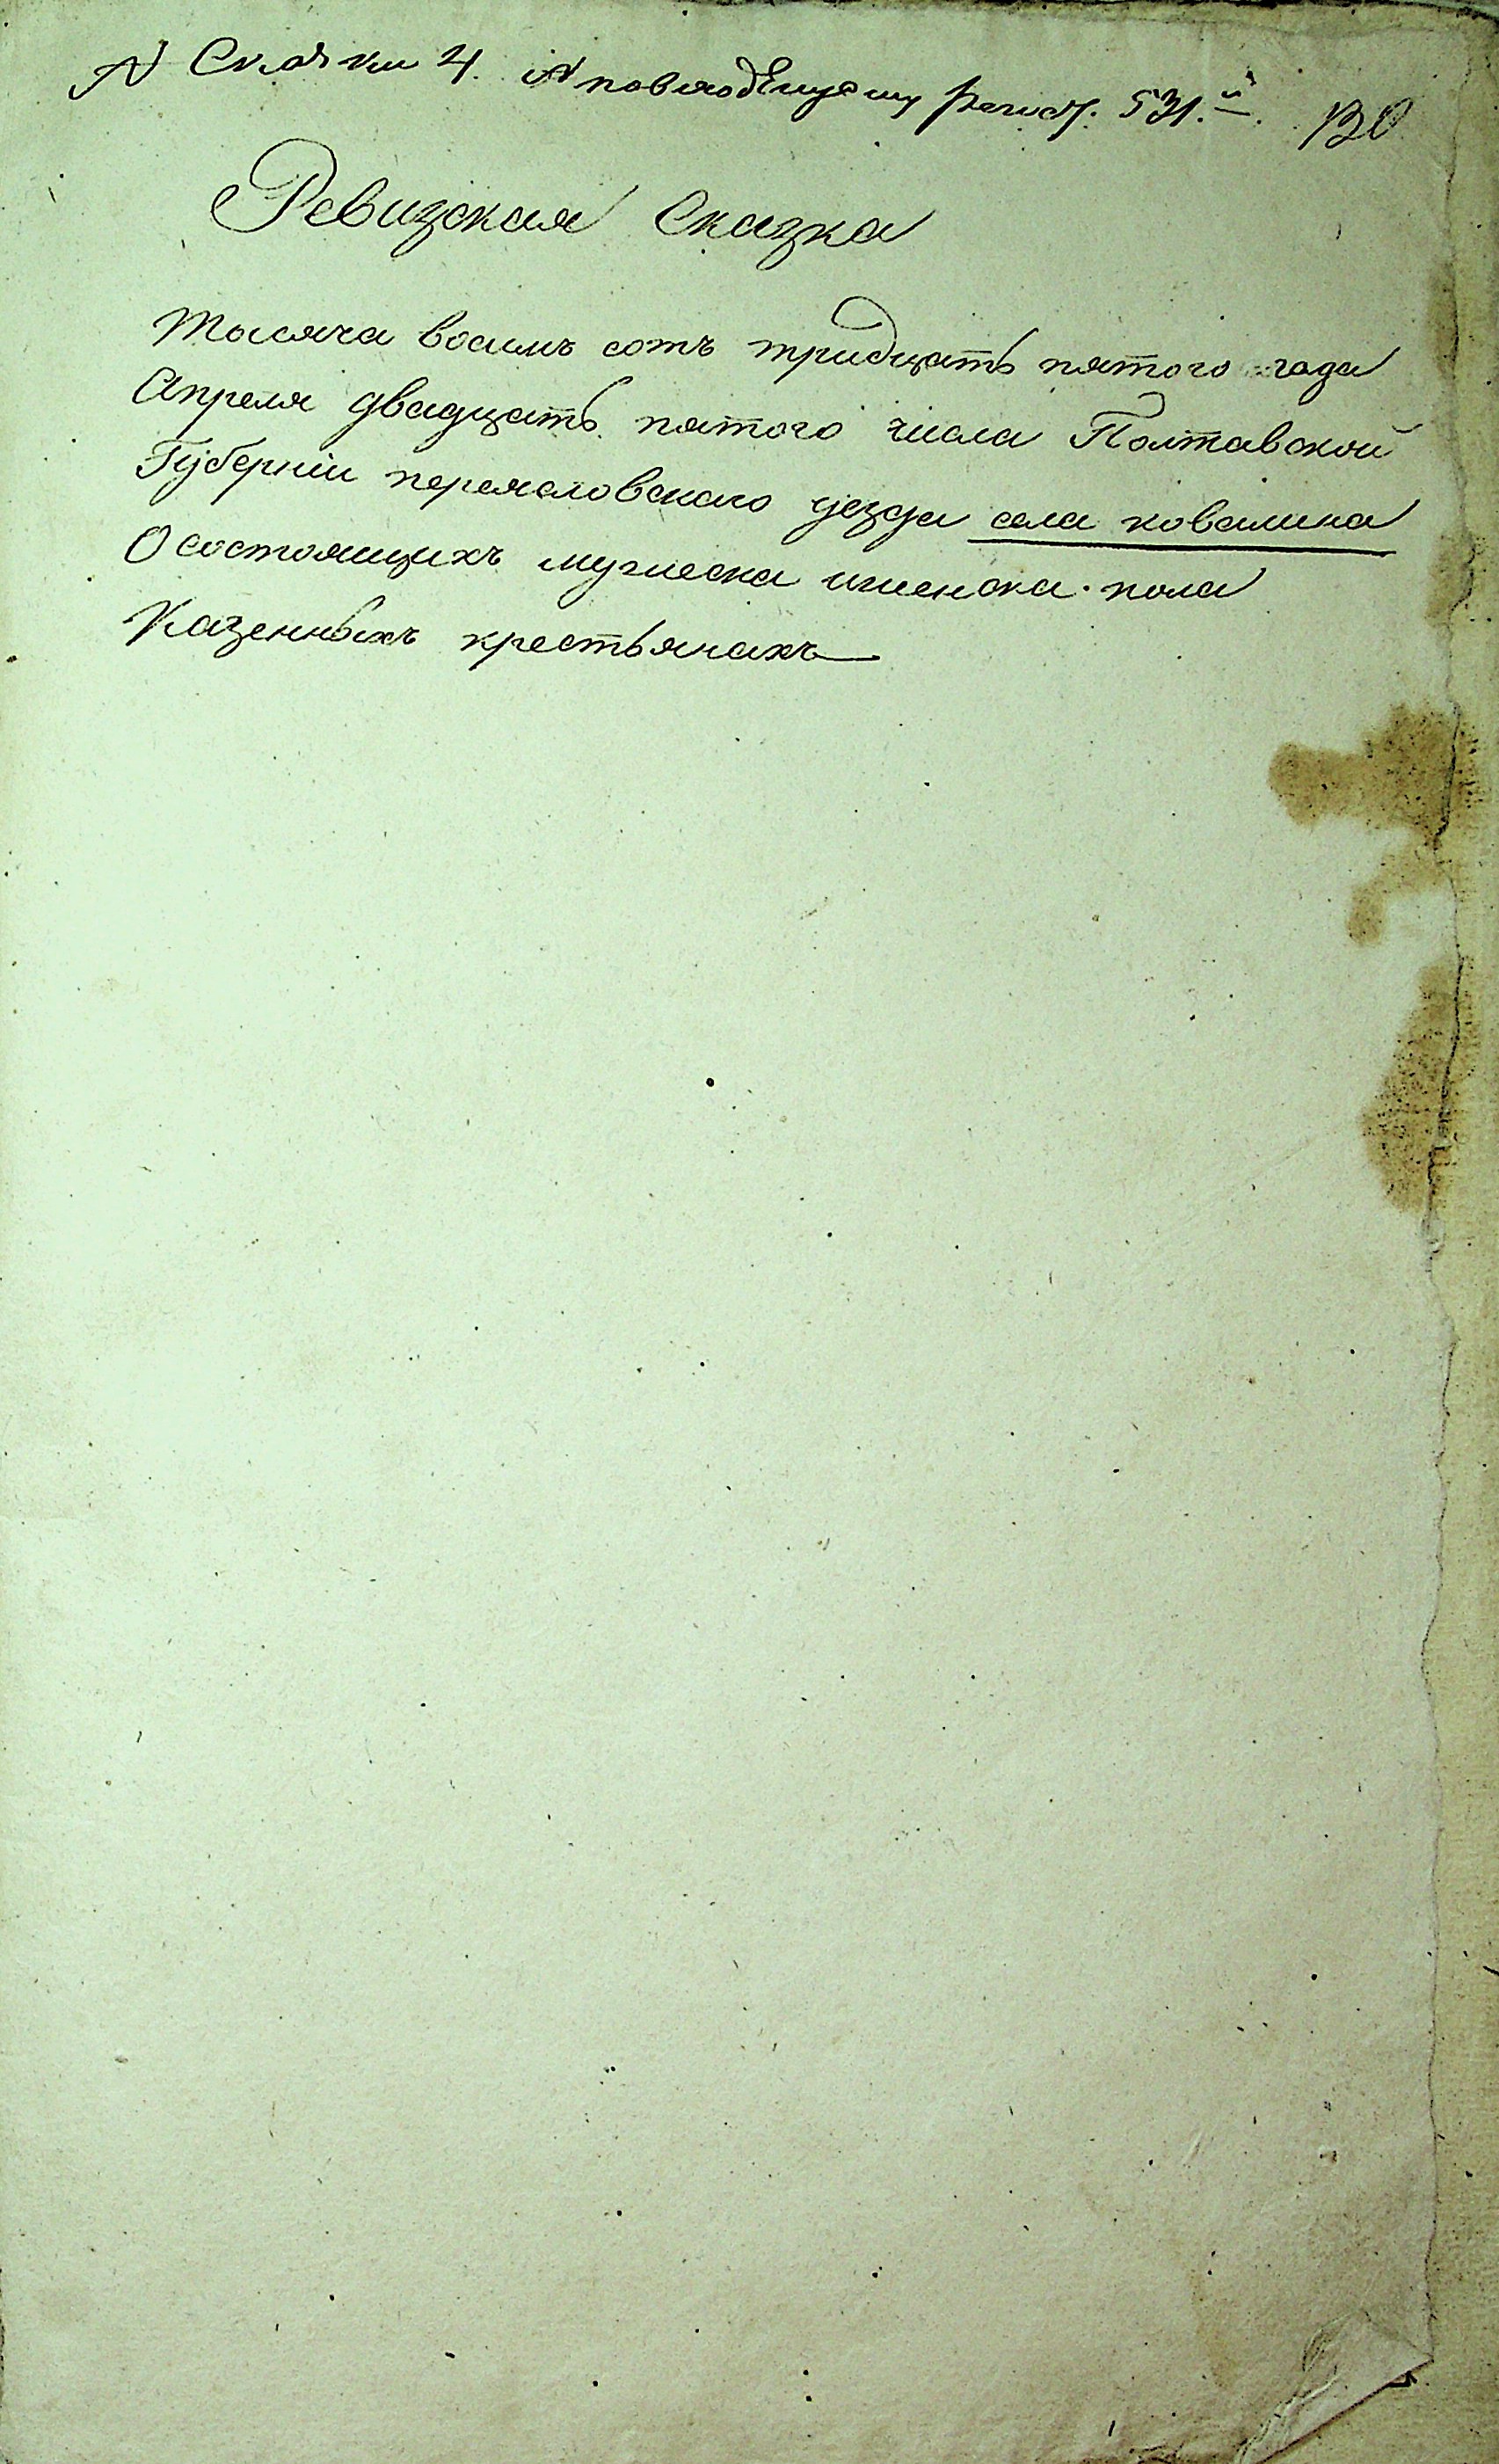 N Сказки 4. N повсходящему регист. 531.й. 130
Ревизская Сказка
Тысяча восимъ сотъ тридцать пятого года
Апреля двадцать пятого числа Полтавской
Губерніи переяславского уезда села ковалина
О состоящихъ мужеска иженска пола
Казенныхъ крестьянахъ